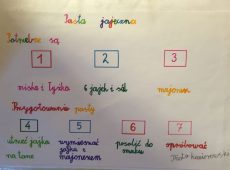 Pasta jajeczna
Potrzebne są
1 2 3
miska i łyżka 6 jajek i sól majonez
Przygotowanie pasty
4 5 6 7
utrzeć jajka wymieszać posolić do spróbować
na tarce jajka z smaku
majonezem